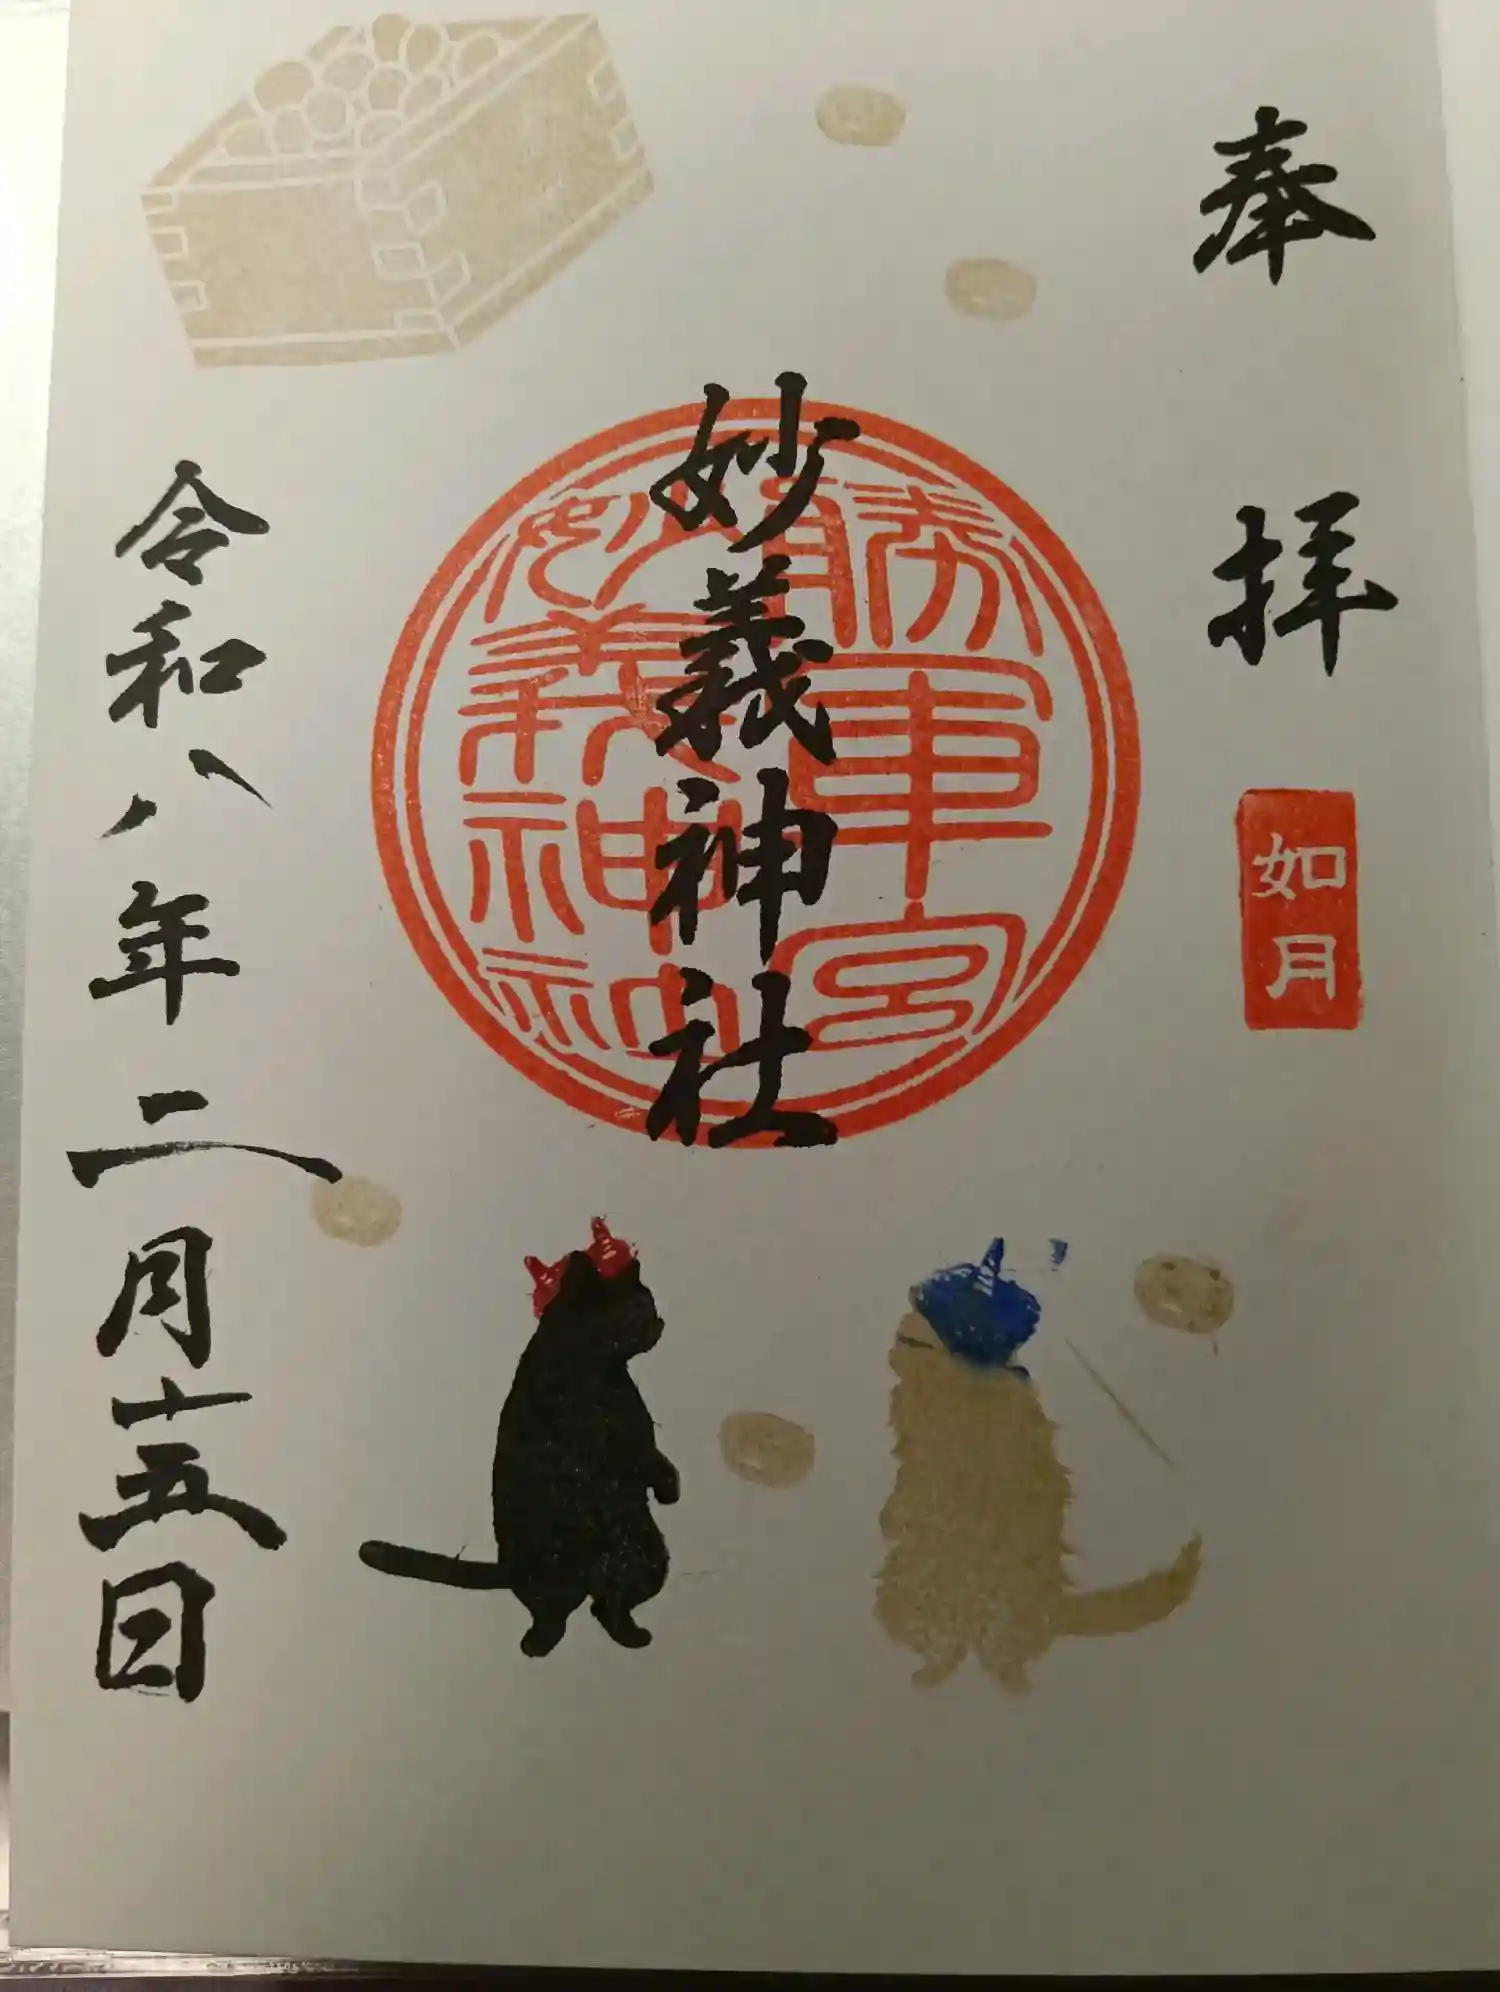 奉拝
如月
妙義神社
勝軍宮
妙義神社
令和八年二月十五日